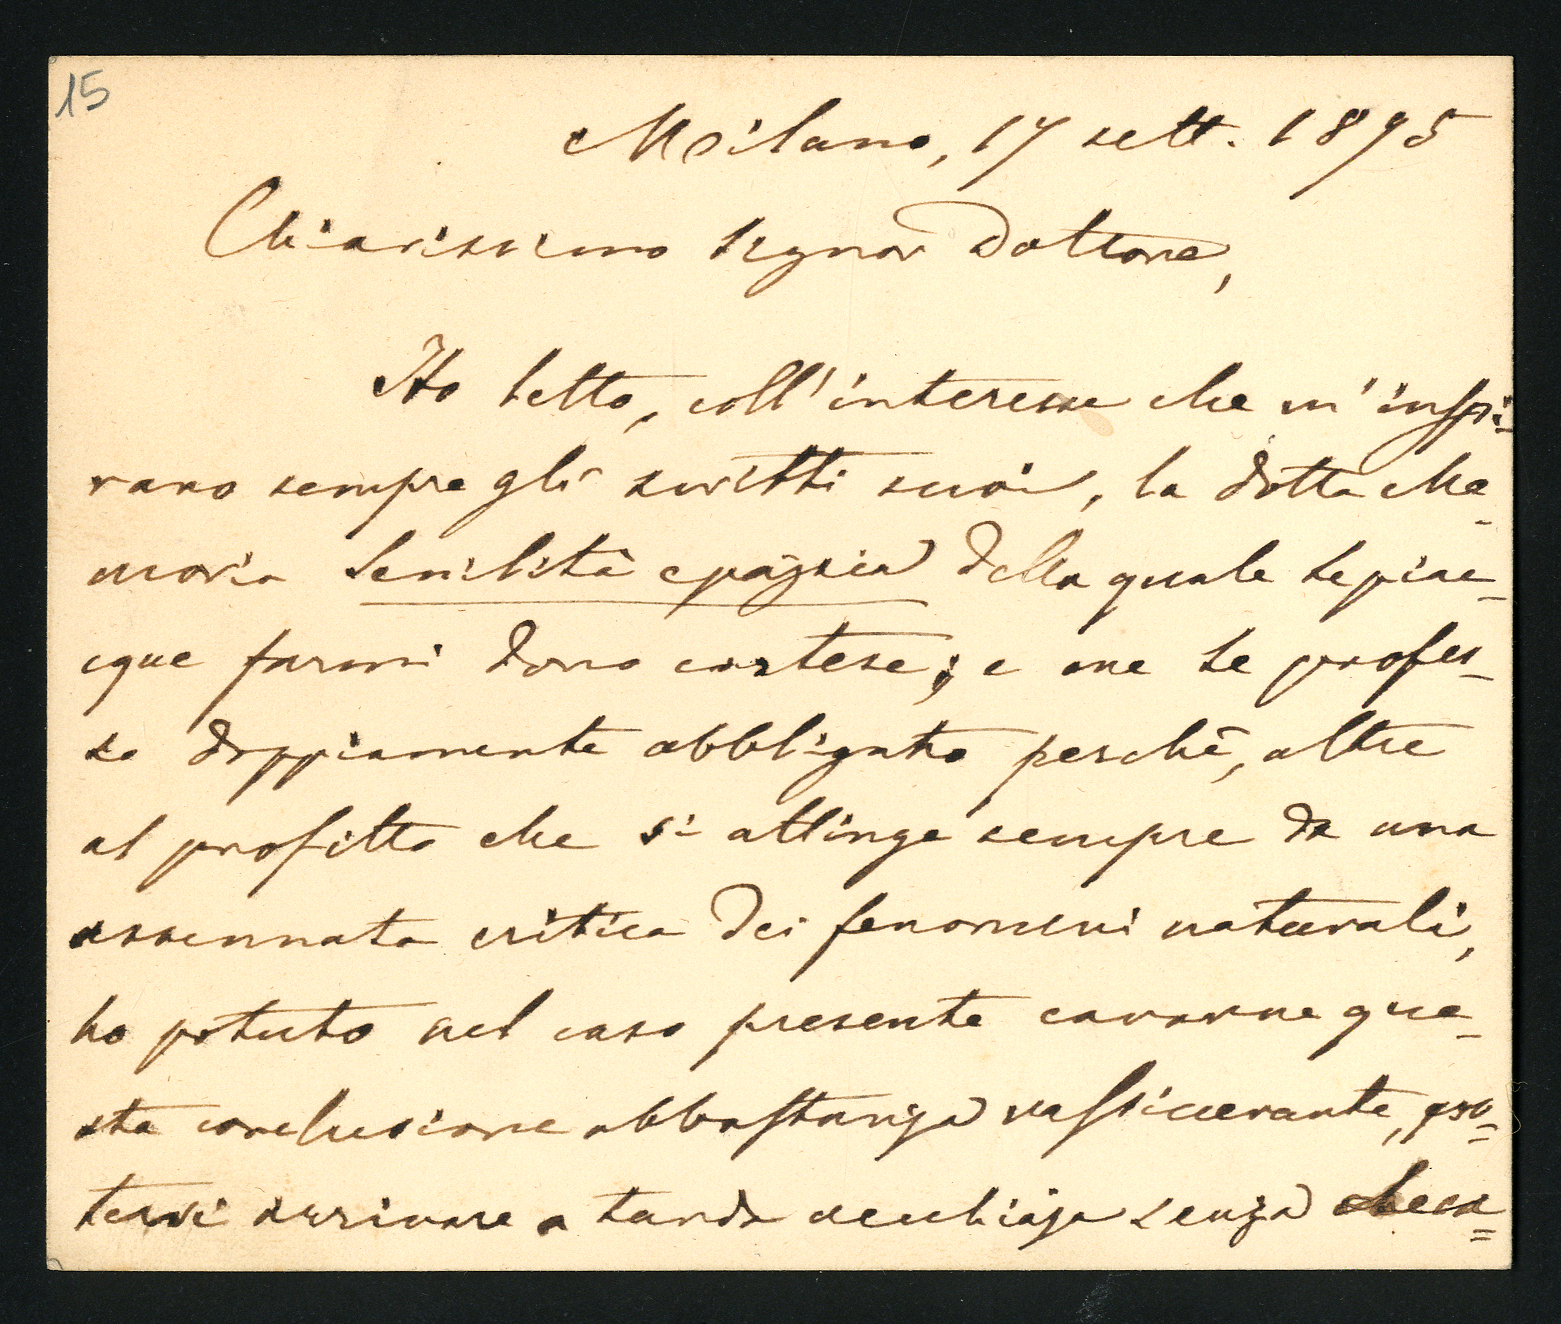 15
Milano, 17 sett. 1895
Chiarissimo Signor Dottore,
Ho letto, coll'interesse che m'inspi-
rano sempre gli scritti suoi, la dotta Me-
moria Senilità e pazzia della quale Le piac-
que farmi dono cortese; e me Le profes-
so doppiamente obbligato perchè, oltre
al profitto che si attinge sempre da una
assennata critica dei fenomeni naturali,
ho potuto nel caso presente cavarne que-
sta conclusione abbastanza rassicurante, po-
tersi arrivare a tarda vecchiaja senza